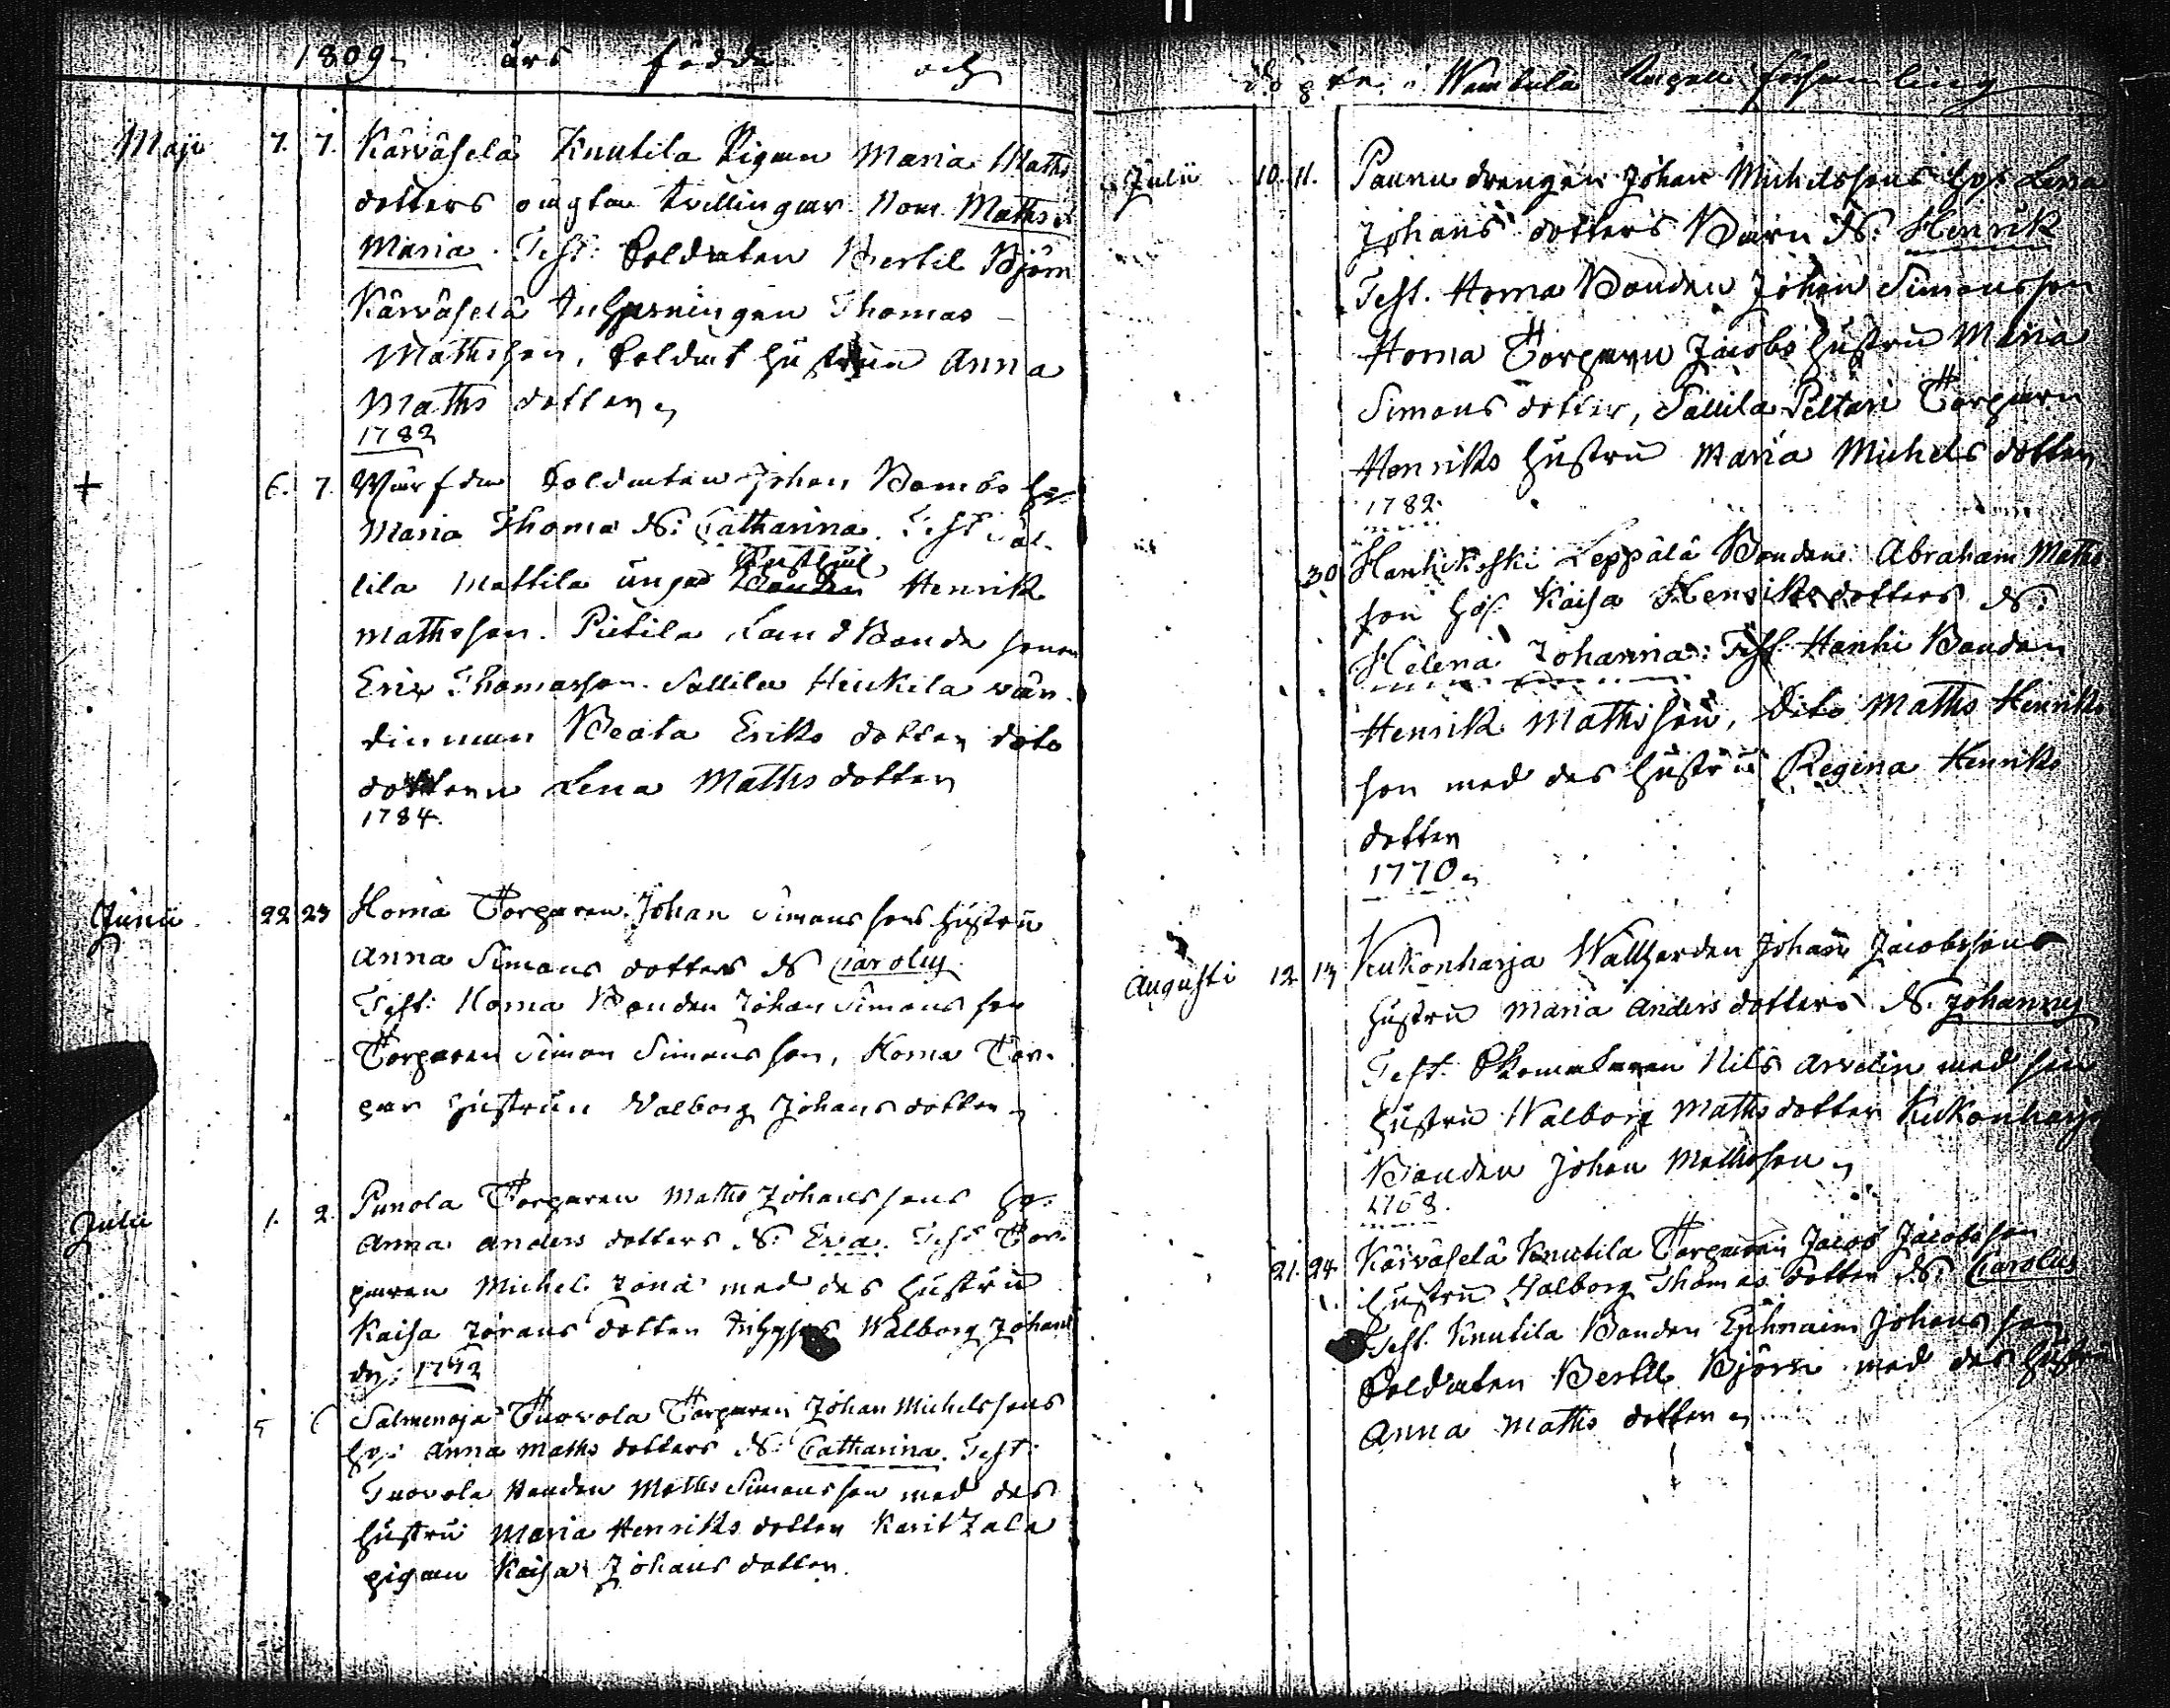 1809 års födde och
Maji 7. 7. Kärväselä Knutila Pigan Maria Maths
dotters oägta tvillingar Nom. Maths o
Maria. Test: Soldaten Bertil Björn
Kärväselä Inhysningen Thomas
Mathsson, Soldat hustrun Anna
Maths dotter
1782
+ 6. 7. Soldaten Johan Bomös h
Maria Thoma ds: Catharina. Test Säl-
lila Mattila unga Rusthål Henrik
Mathsson. Pietila Land Bonde sonen
Eric Thomasson. Sallila Heickila vär-
dinnan Beata Eriks dotter dito
dottern Lena Maths dotter
1784.
Junii 22 23 Homa Torparen Johan Simons sons hustru
Anna Simons dotters ds Carolus.
Test: Homa Bonden Johan Simons son
Torparen Simon Simons son, Homa Tor-
par hustrun Valborg Johans dotter
Julii 1. 2. Punola Torparen Maths Johans sons h.
Anna Anders dotters ds: Eva. Test Tor-
paren Michel Jona med des hustru
Kaisa Jörans dotter Inhyses Walborg Johans
dr: 1742
5 6 Salmenoja Tuovola Torparen Johan Michelssons
hs: Anna Maths dotters ds: Catharina. Test:
Tuovola Bonden Maths Simons son med des
hustru Maria Henriks dotter Karitzala
pigan Kaisa Johans dotter.
döpte i Wambula Capell församling
Julii 10. 11. Paunu drengen Johan Michelssons hs: Lena
Johans dotters Barn ds: Henrik
Test. Homa Bonden Johan Simonsson
Homa Torparn Jacobs hustru Maria
Simons dotter, Sallila Peltari Torparn
Henriks hustru Maria Michels dotter
1782.
30 Hanhikoski Leppälä Bonden Abraham Maths
son hs. Kaisa Henriks dotters ds:
Helena Johanna: Test Hanhi Bonden
Henrik Mathsson, Dito Maths Henriks
son med des hustru Regina Henriks
dotter
1770
Augusti 12 13 Kukonharja Wallherden Johan Jacobssons
hustru Maria Anders dotters ds. Johannes
Test. Skomakaren Nils Arvelin med sin
hustru Walborg Maths dotter Kukonharja
Bonden Johan Mathsson
1768.
21. 24 Kärväselä Knutila Torparen Jacob Jacobsson
hustru Valborg Thomas dotter ds: Carolus
Test. Knutila Bonden Ephraim Johans son
Soldaten Bertil Björn med des hustru
Anna Maths dotter